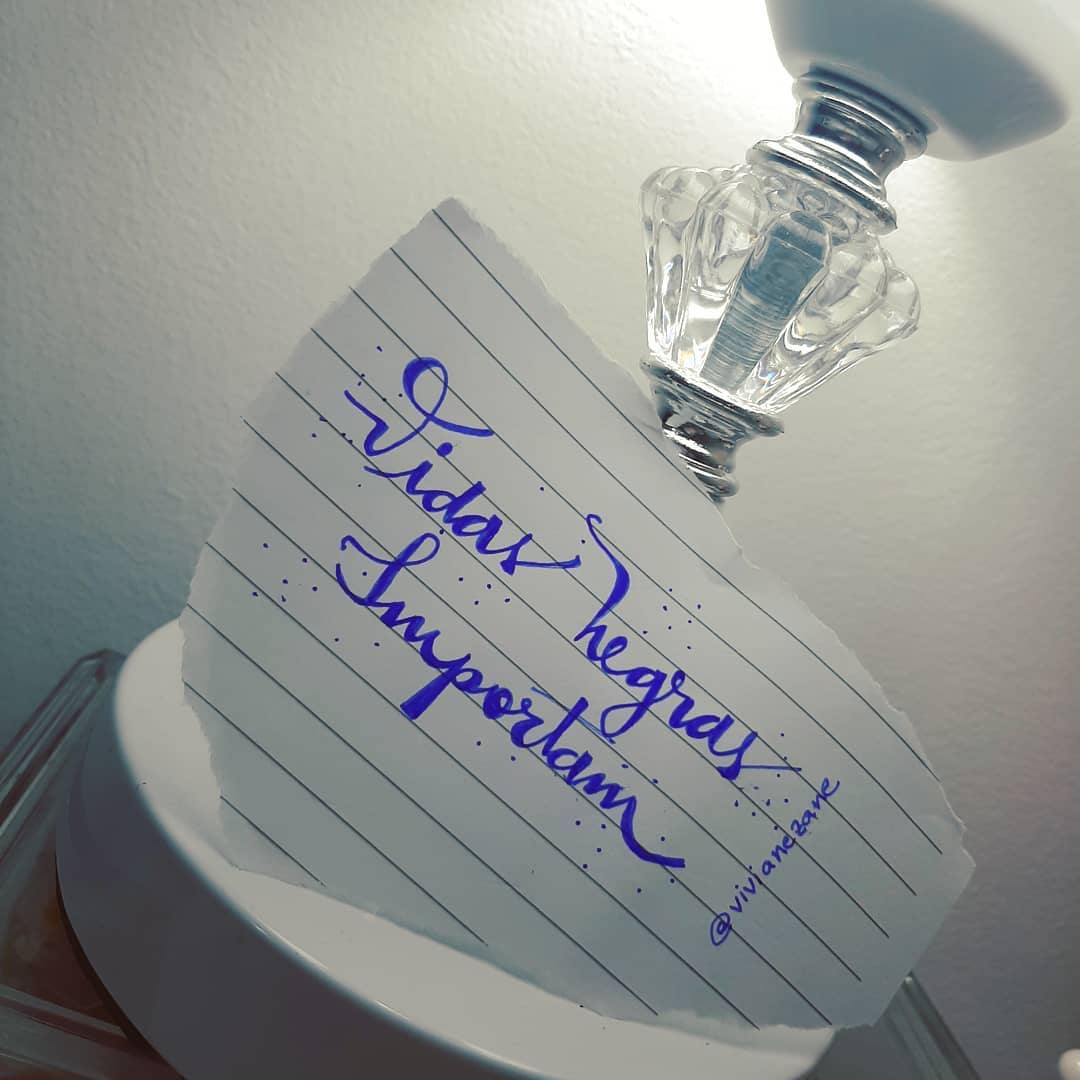 Vidas negras
Importam
@vivianezane